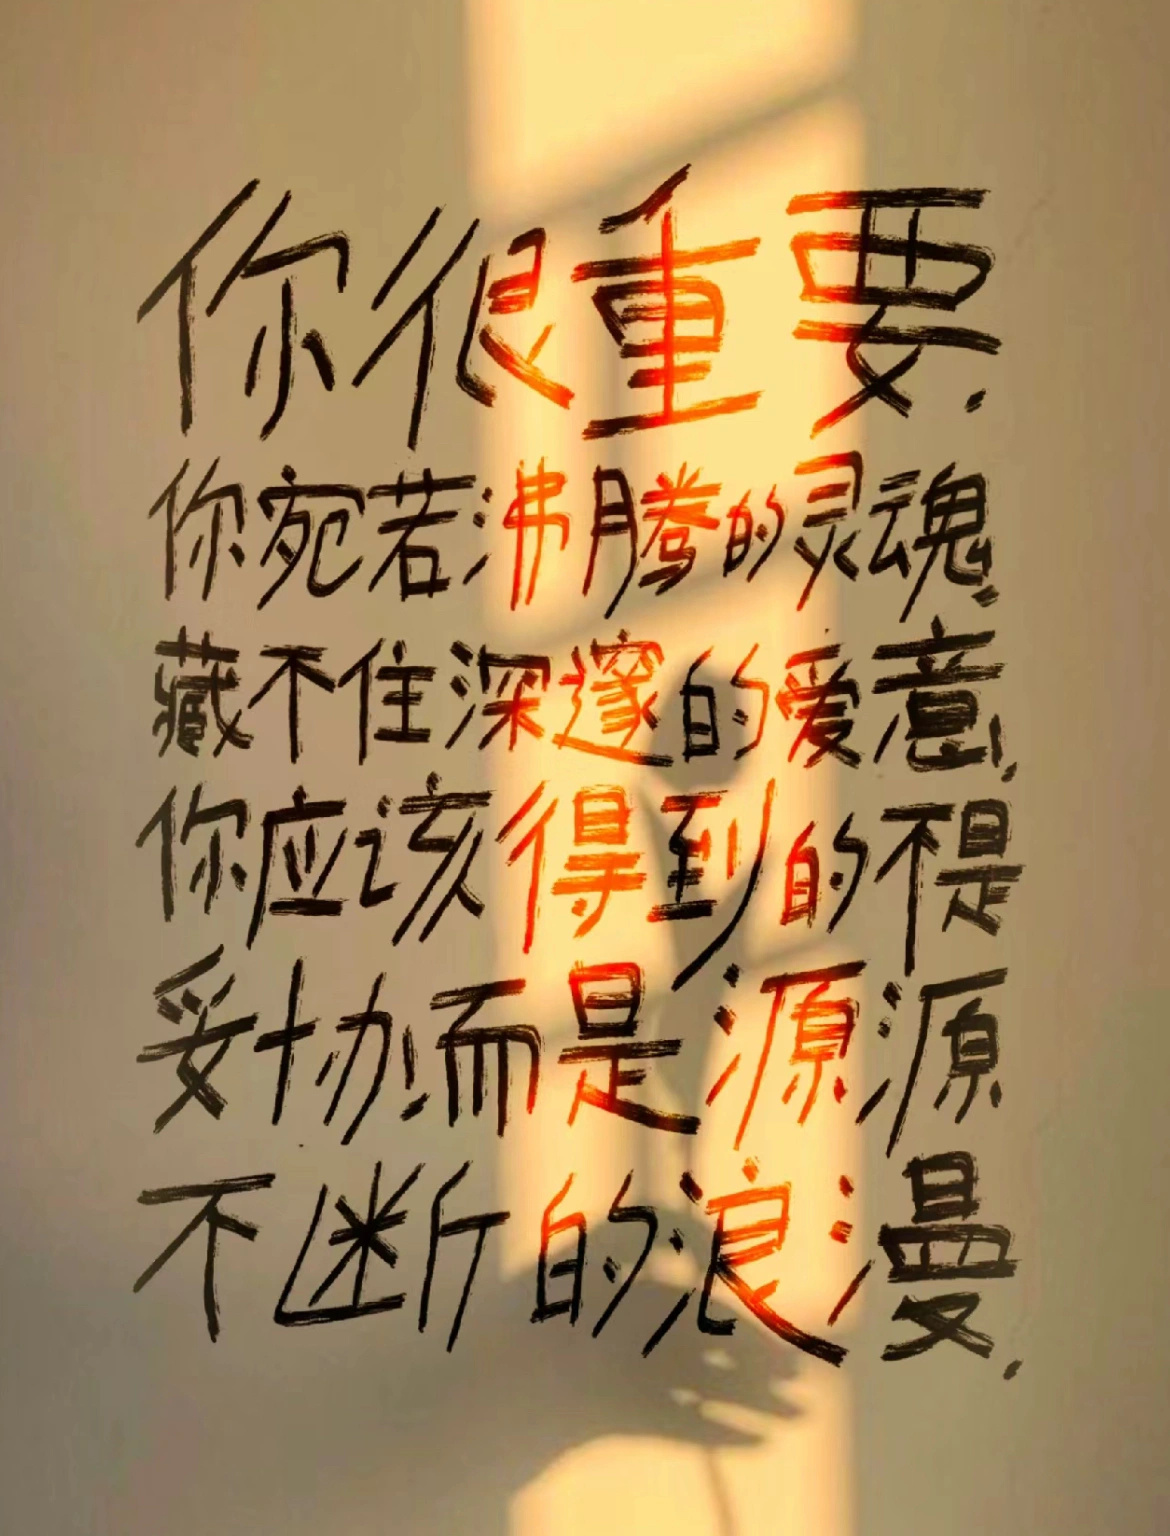 你很重要.
你宛若沸腾的灵魂.
藏不住深邃的爱意,
你应该得到的不是
妥协,而是源源
不断的浪漫.